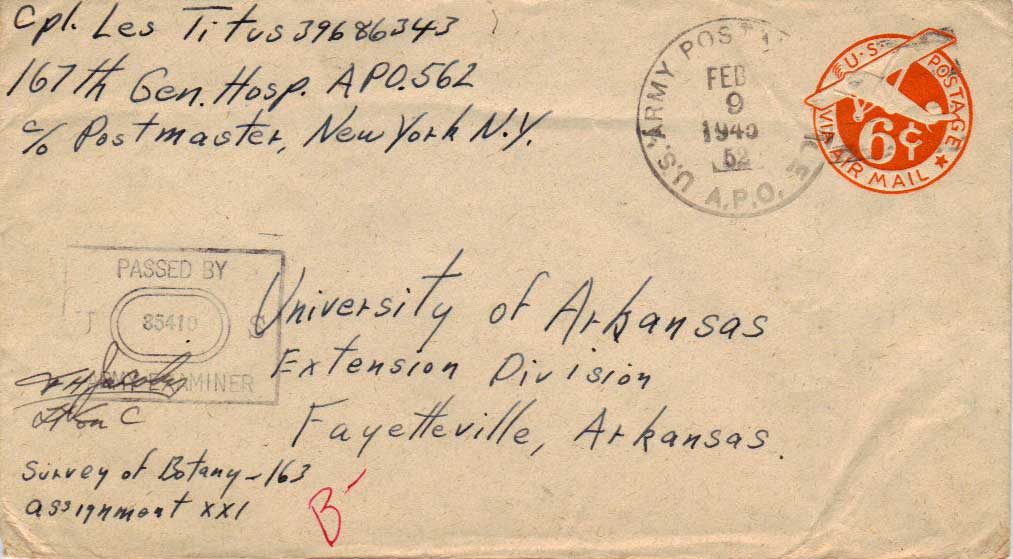 Cpl. Les Titus 39686343
167th Gen. Hosp. APO.562
c/o Postmaster, New York N.Y.
U.S. ARMY POSTAL
FEB
9
1945
52
A.P.O.
U.S. POSTAGE
VIA AIR MAIL
6¢
PASSED BY
U S
35410
ARMY EXAMINER
University of Arkansas
Extension Division
Fayetteville, Arkansas.
Survey of Botany-163
assignment XXI
B-